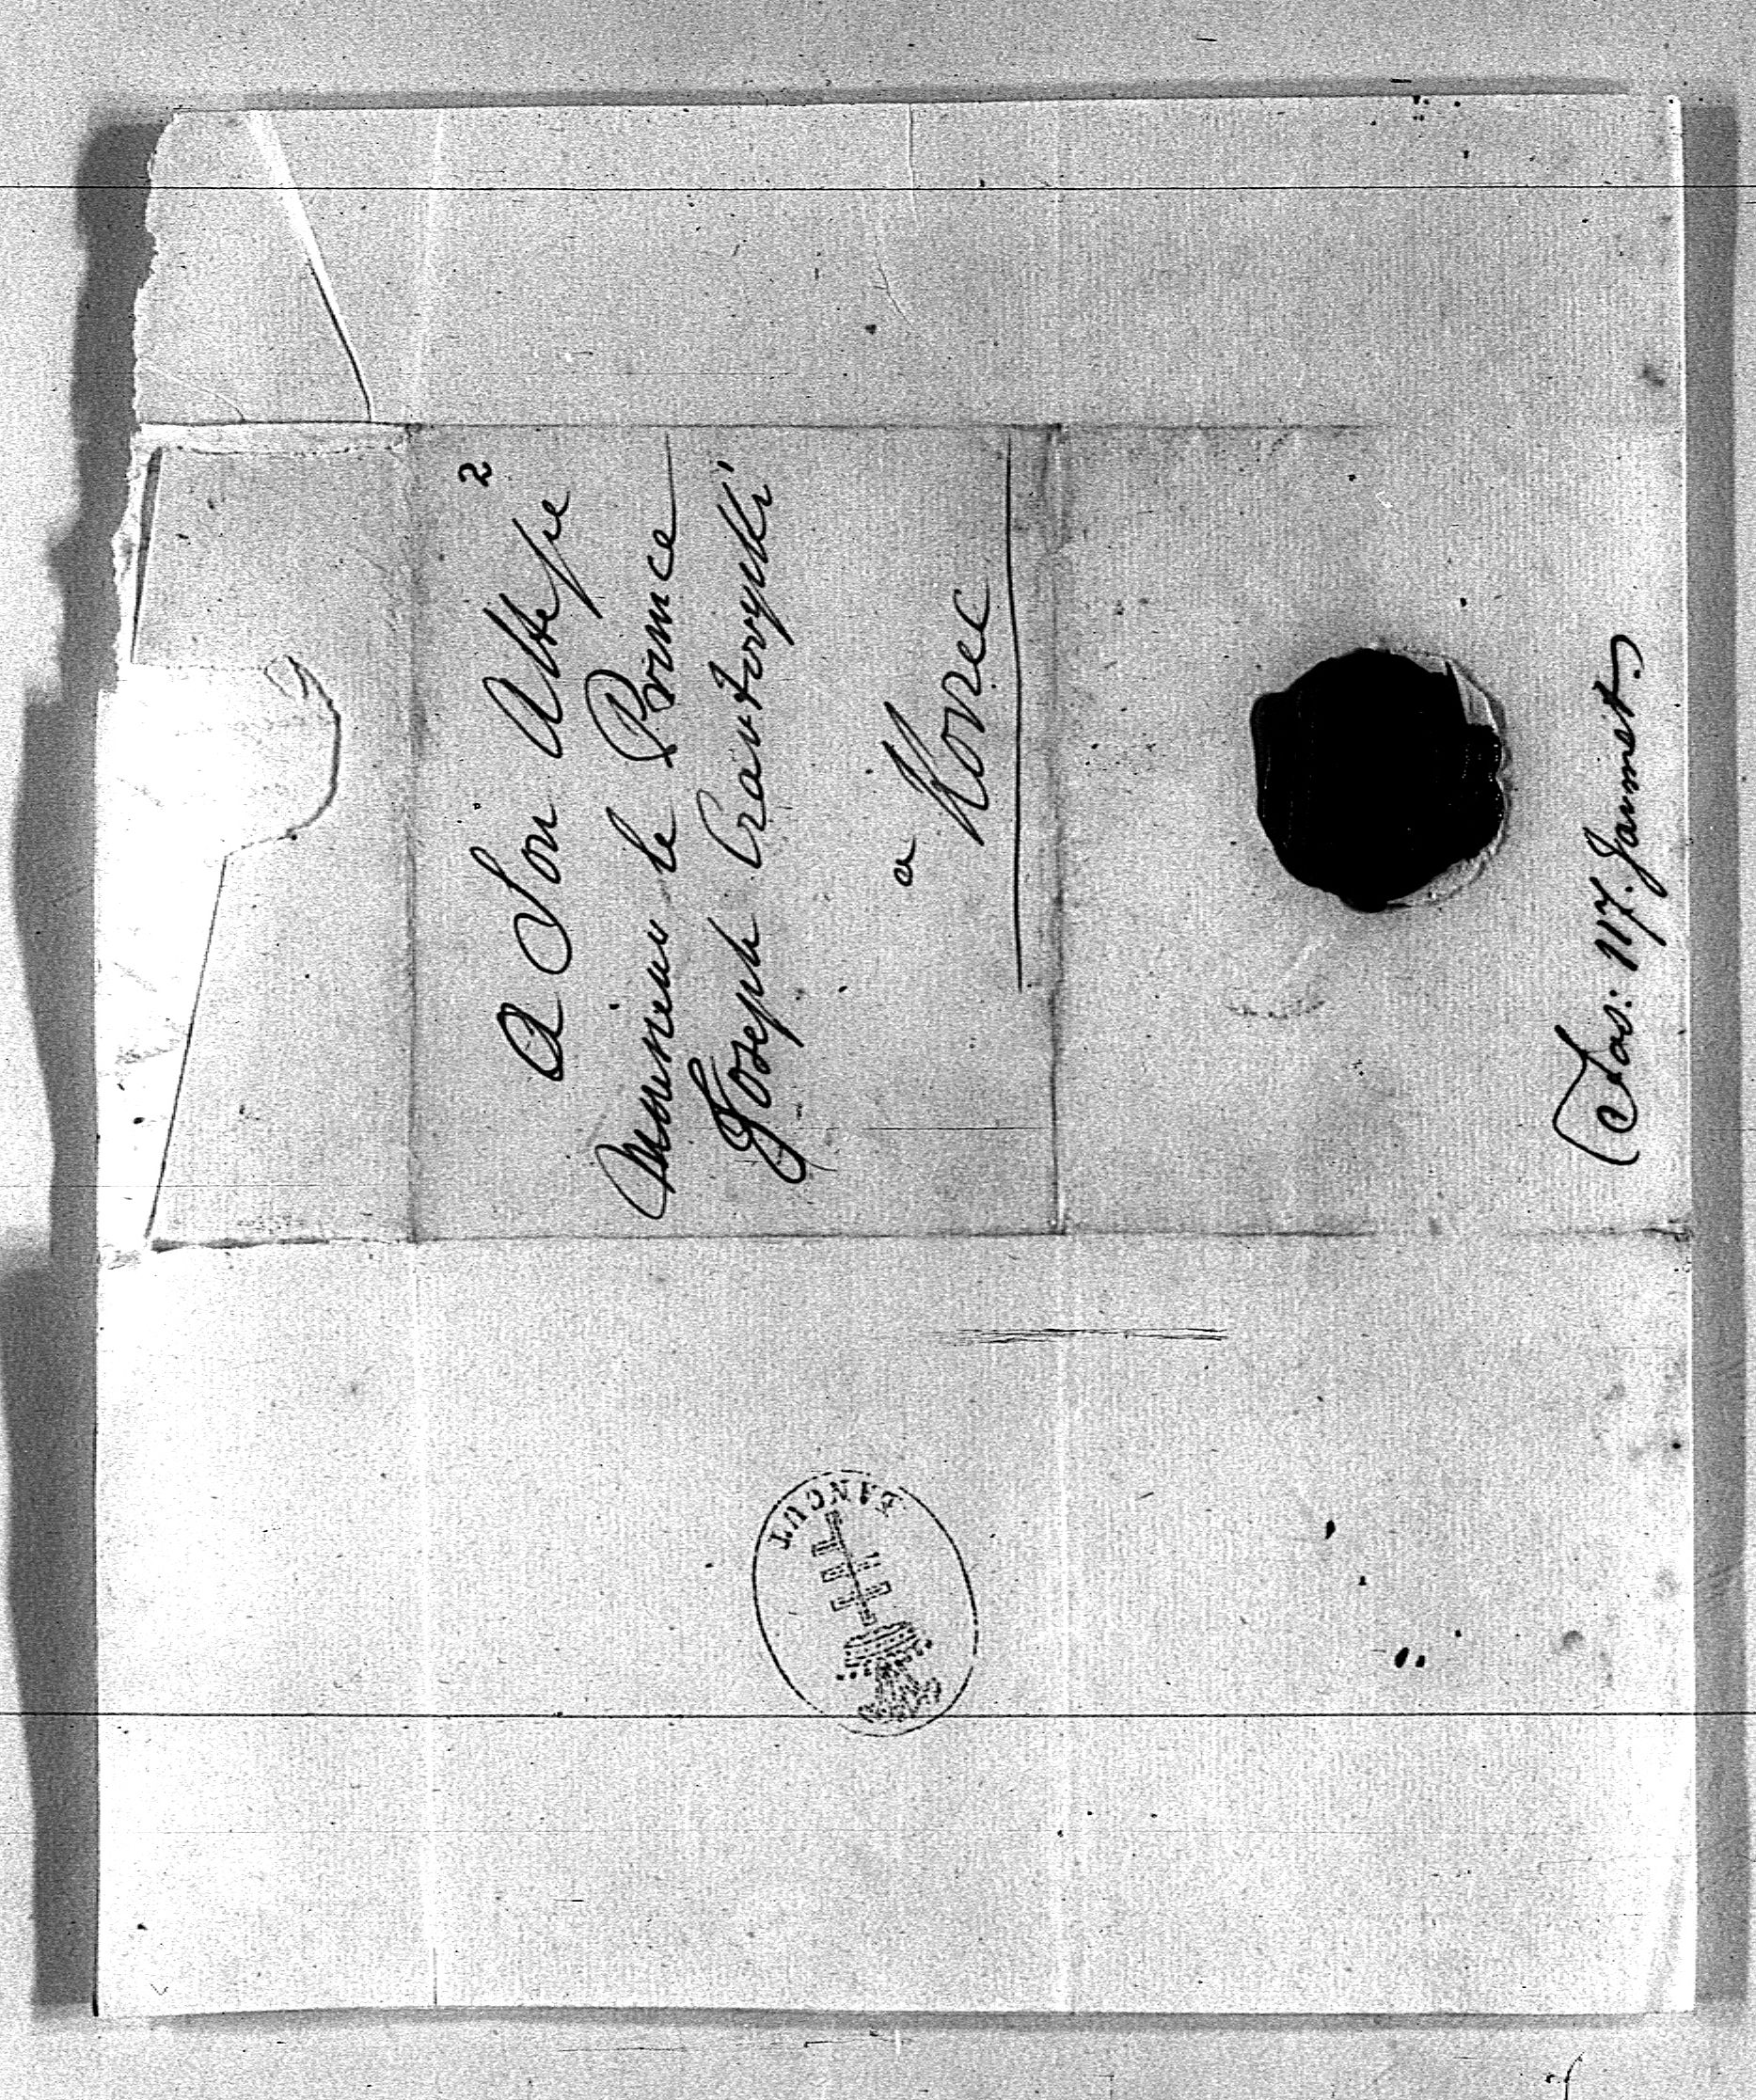 2
A Son Altesse
Monsieur le Prince
Joseph Czartoryski
a Korec
Fas: 117. Jannet
ŁANCUT